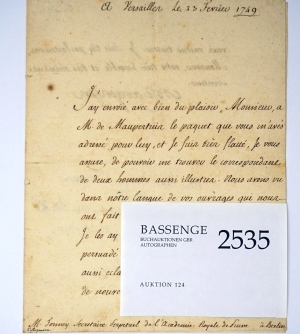 A Versailles le 23 Février 1749
J'ay envoié avec bien du plaisir, Monsieur, a
M. de Maupertuis le paquet que vous m'avés
adressé pour luy, et je suis bien flaté, je vous
assure, de pouvoir me trouver le correspondant
de deux hommes aussi illustres. Nous avons vu
dans nôtre langue de vos ouvrages que nous
ont fait
Je les ay
persuadé
aussi
de nouv
BASSENGE
BUCHAUKTIONEN GBR
AUTOGRAPHEN
2535
AUKTION 124
M. Formey Secretaire perpetuel de l'Academie Royale de Berlin